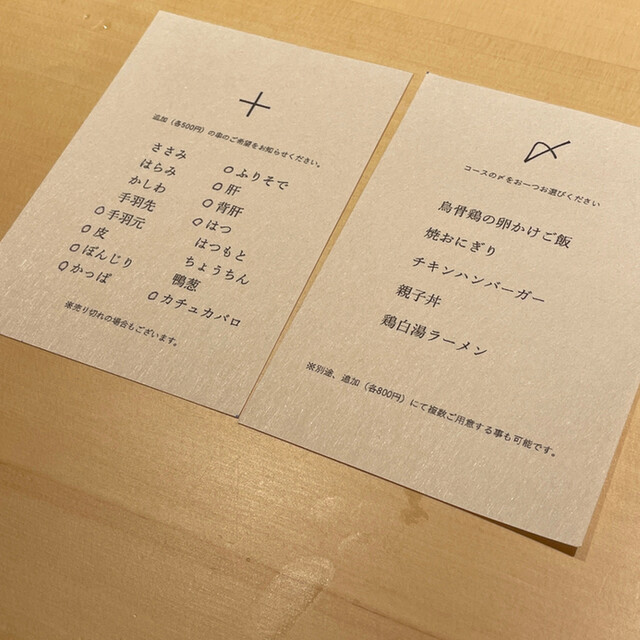 ＋
追加（各500円）の串のご希望をお知らせください。
ささみ
はらみ
かしわ
手羽先
○手羽元
○皮
○ぼんじり
○かっぱ
○ふりそで
○肝
○背肝
○はつ
はつもと
ちょうちん
鴨葱
○カチュカバロ
※売り切れの場合もございます。
〆
コースの〆をお一つお選びください
烏骨鶏の卵かけご飯
焼おにぎり
チキンハンバーガー
親子丼
鶏白湯ラーメン
※別途、追加（各800円）にて複数ご用意する事も可能です。